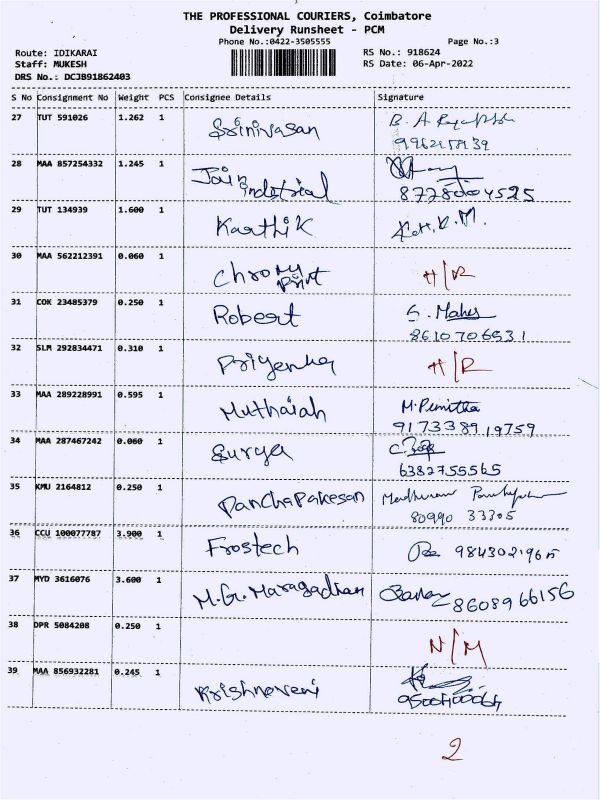 THE PROFESSIONAL COURIERS, Coimbatore
Delivery Runsheet - PCM
Phone No.:0422-3505555
Page No.:3
Route: IDIKARAI
RS No.: 918624
Staff: MUKESH
RS Date: 06-Apr-2022
DRS No.: DCJB91862403
S No Consignment No Weight PCS Consignee Details Signature
27 TUT 591026 1.262 1 Srinivasan
28 MAA 857254332 1.245 1 Jain
industrial
29 TUT 134939 1.600 1 Karthik
30 MAA 562212391 0.060 1 H/R
Print
31 COK 23485379 0.250 1 Robert S. Mahes
8610706531
32 SLM 292834471 0.310 1 Priyenka H/R
33 MAA 289228991 0.595 1 Muthaiah M. Punitha
917338919759
34 MAA 287467242 0.060 1 Surya
6382755565
35 KMU 2164812 0.250 1 Panchapakesan
80990 33305
36 CCU 100077787 3.900 1 Frostech
37 MYD 3616076 3.600 1 M.G. 8608966156
38 DPR 5084208 0.250 1 N/M
39 MAA 856932281 0.245 1 Krishnaveni
2